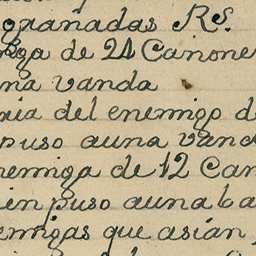 granadas RS.
ga de 24 Canone
na vanda
nia del enemigo d
puso auna vand
nemiga de 12 Can
in puso auna ba
emigas que asían